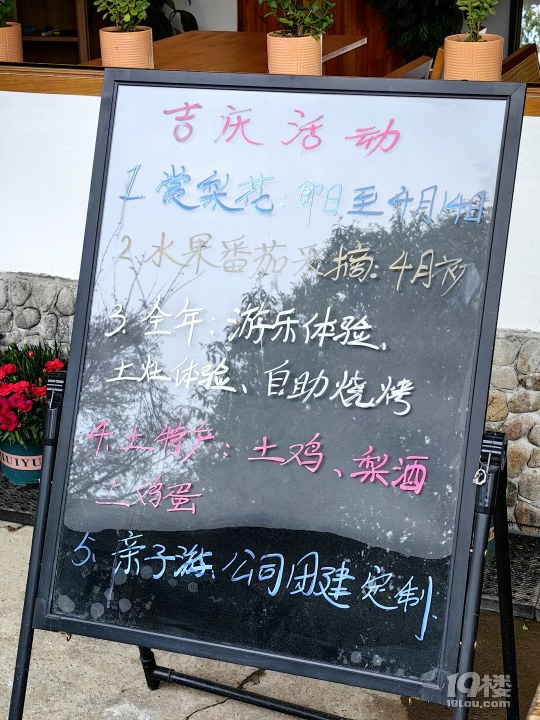 吉庆活动
1. 赏梨花：即日至4月14日
2. 水果番茄采摘：4月初
3. 全年：游乐体验、
土灶体验、自助烧烤
4. 土特产：土鸡、梨酒
土鸡蛋
5、亲子游、公司团建定制.
HUIYU
19楼
19lou.com